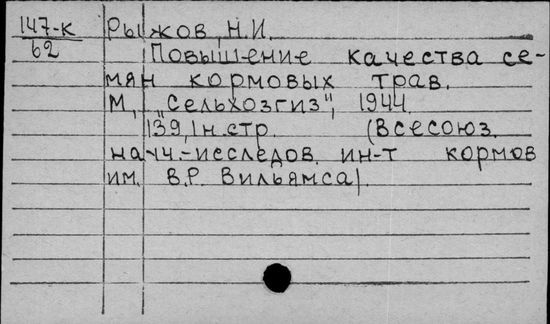 147-к
62
Рыжов, Н.И.
Повышение качества се-
мян кормовых трав.
М, "Сельхозгиз", 1944.
139,1н.стр. (Всесоюз.
научн.-исследов. ин-т кормов
им. В.Р. Вильямса).